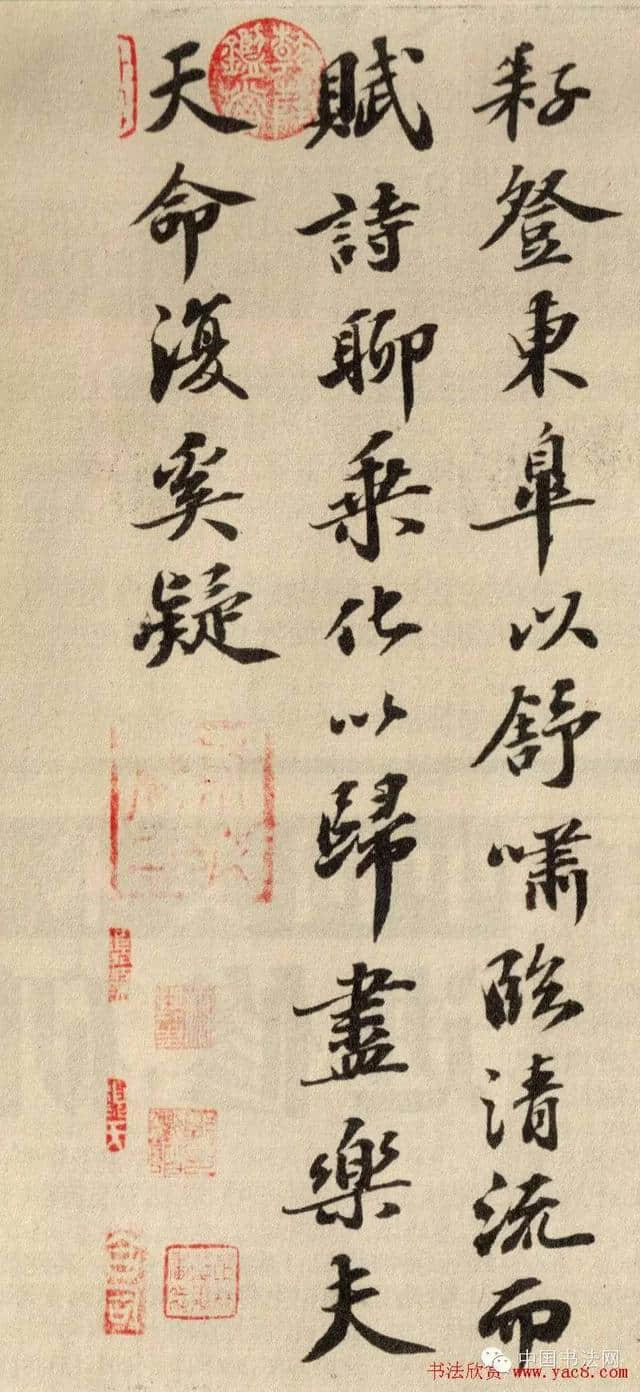 耔登東皐以舒嘯臨清流而
賦詩聊乗化以歸盡樂夫
天命復奚疑
乾隆鑑賞
中国书法网
书法欣赏 www.yac8.com